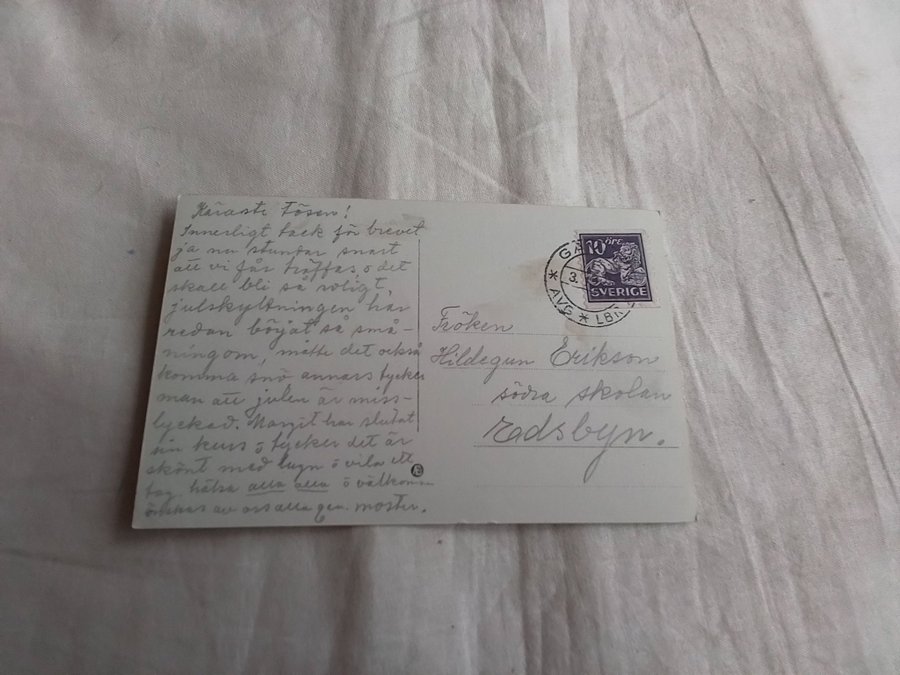 Käraste Tösen!
Innerligt tack för brevet
ja nu stundar snart
att vi får träffas o det
skall bli så roligt,
julskyltningen har
redan börjat så små-
ningom, måtte det också
komma snö annars tycker
man att julen är miss-
lyckad. Margit har slutat
sin kurs o tycker det är
skönt med lugn o vila ett
tag. hälsa alla alla o välkommen
önskas av oss alla gen. moster.
10 ÖRE
SVERIGE
* AVG * LBR
3.
Fröken
Hildegun Erikson
södra skolan
Edsbyn.